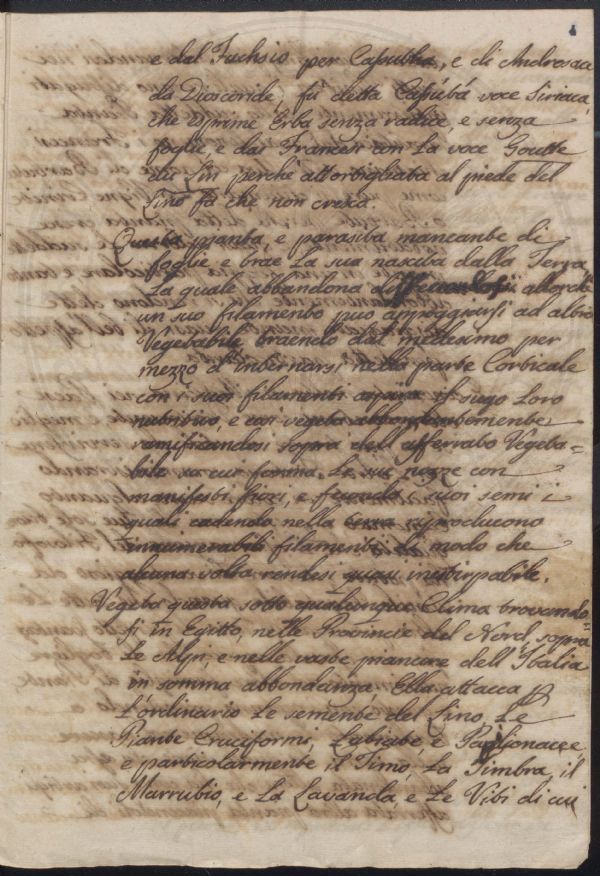 e dal Fuchsio per Capubha, e di Androsace
da Dioscoride fù detta Capubá voce Siriaca,
che esprime Erba senza radice, e senza
foglie e dai Francesi con la voce Goutte
du Lin perchè attortigliata al piede del
Lino fà che non cresca.
Questa pianta, e parasita mancante di
foglie, e trae La sua nascita dalla Terra,
La quale abbandona allorchè
un suo filamento può appoggiarsi ad altro
Vegetabile traendo dal medesimo per
mezzo d'internarsi nella parte Corticale
con i suoi filamenti il sugo Loro
nutritivo, e così vegeta abbondantemente
ramificandosi sopra dell' afferrato Vegeta=
bile su cui forma Le sue nozze con
manifesti fiori, e feconda i suoi semi i
quali cadendo nella terra riproducono
innumerabili filamenti di modo che
alcuna volta rendesi quasi inestirpabile.
Vegeta questa sotto qualunque Clima trovando=
si in Egitto, nelle Provincie del Nord, sopra
Le Alpi, e nelle vaste pianure dell'Italia
in somma abbondanza. Ella attacca p
L'ordinario Le semente del Lino, Le
Piante Cruciformi, Labiate e Papilionacee
e particolarmente il Timo, La Timbra, il
Marrubio, e La Lavanda, e Le Viti di cui